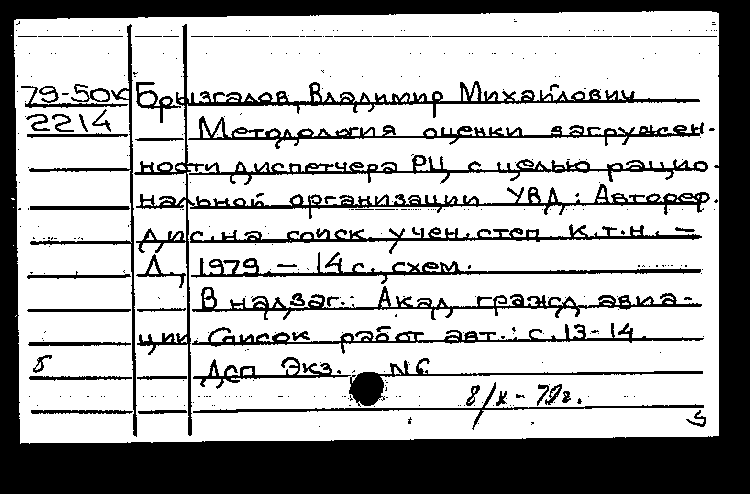 79-50к Брызгалов, Владимир Михайлович
2214 Методология оценки загружен-
ности диспетчера РЦ с целью рацио-
нальной организации УВД: Автореф.
дис. на соиск. учен. степ. к.т.н. -
Л., 1979. - 14 с., схем.
В надзаг.: Акад. гражд. авиа-
ции. Список работ авт.: с. 13-14.
б Дсп Экз. N6
8/X-79г.